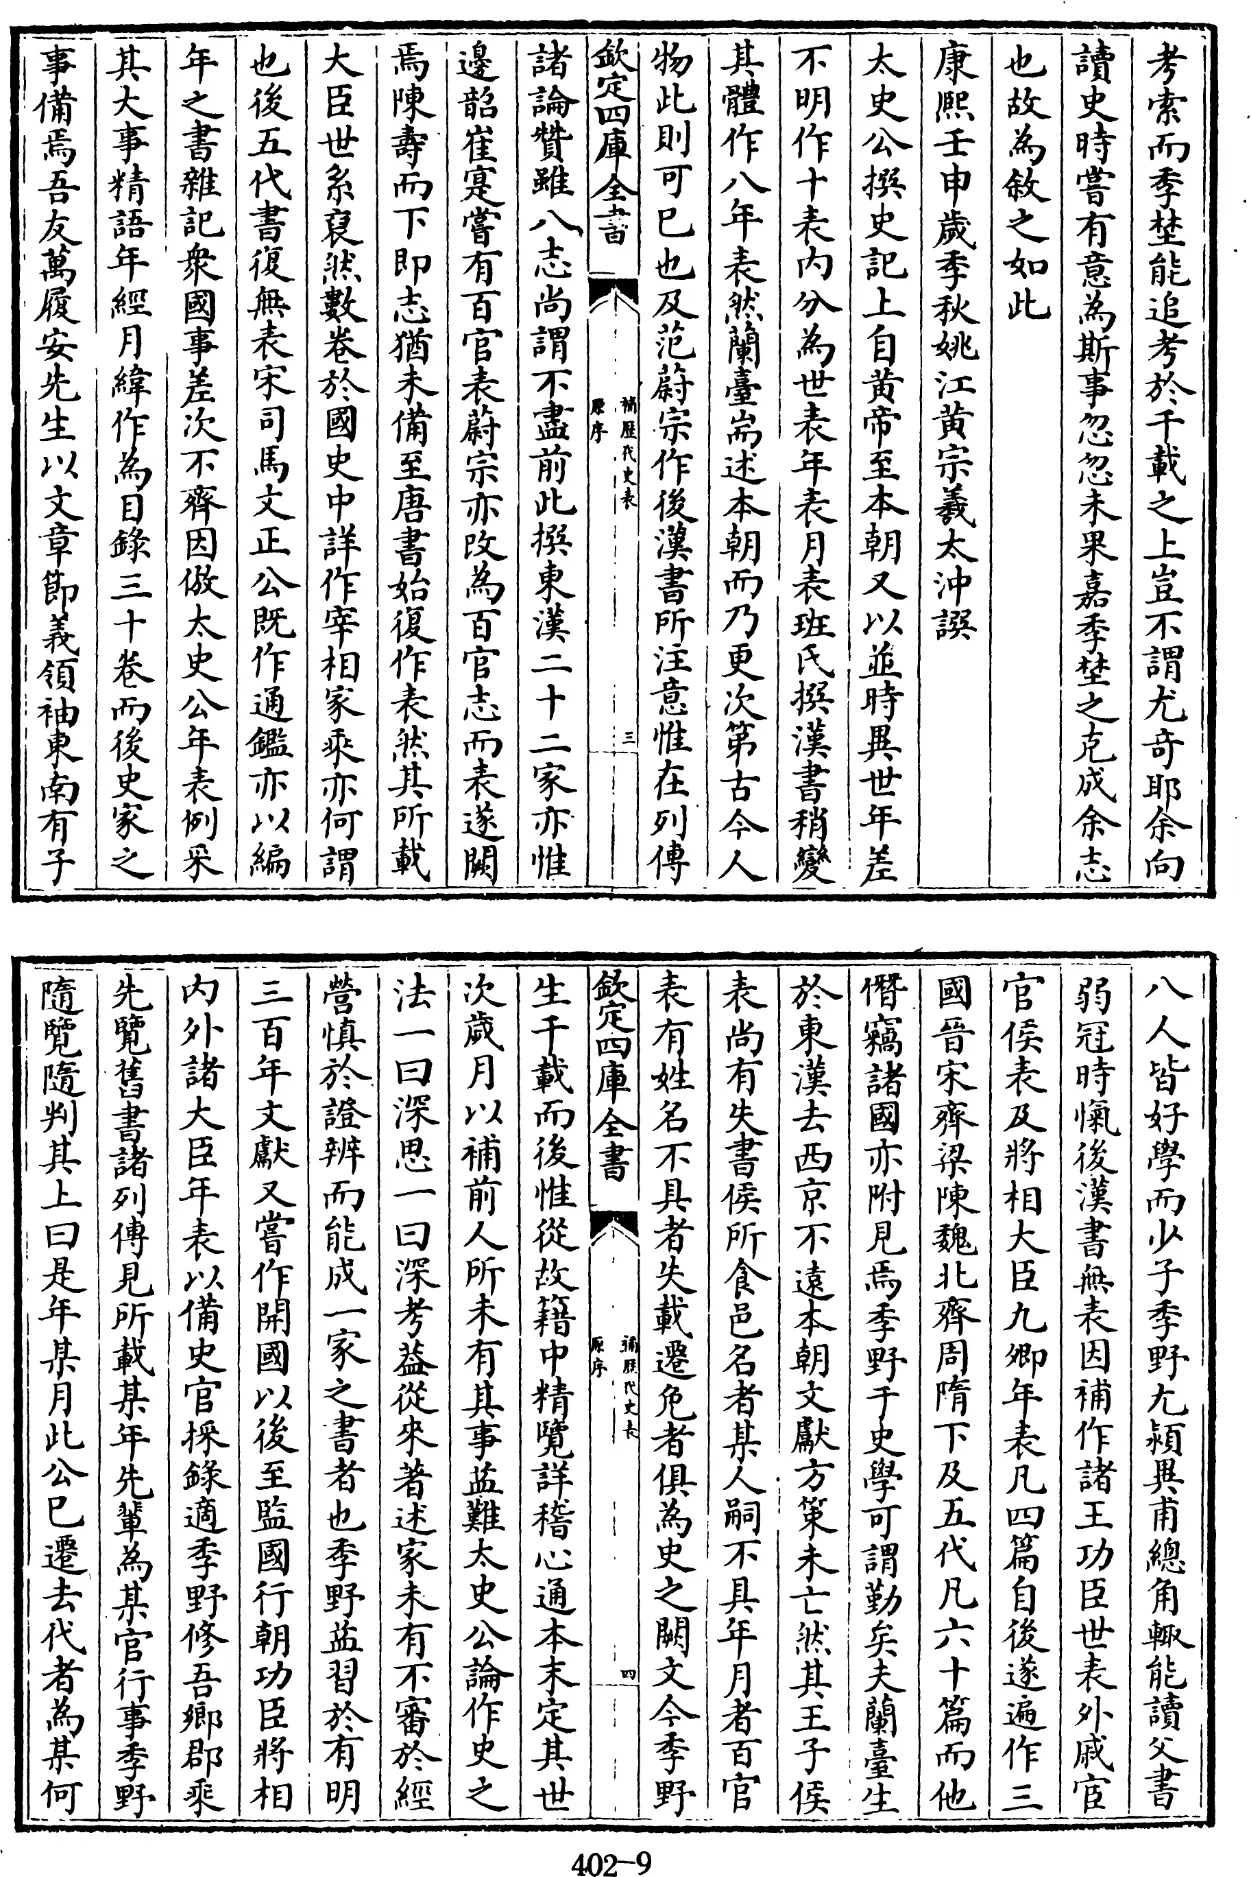 考索而季埜能追考於千載之上豈不謂尤奇耶余向
讀史時嘗有意為斯事忽忽未果嘉季埜之克成余志
也故為敘之如此
康熙壬申歲季秋姚江黄宗羲太沖譔
太史公撰史記上自黄帝至本朝又以並時異世年差
不明作十表内分為世表年表月表班氏撰漢書稍變
其體作八年表然蘭臺耑述本朝而乃更次第古今人
物此則可已也及范蔚宗作後漢書所注意惟在列傳
欽定四庫全書
補歷代史表
原序
三
諸論贊雖八志尚謂不盡前此撰東漢二十二家亦惟
邊韶崔寔嘗有百官表蔚宗亦改為百官志而表遂闕
焉陳壽而下即志猶未備至唐書始復作表然其所載
大臣世系裒然數卷於國史中詳作宰相家乘亦何謂
也後五代書復無表宋司馬文正公既作通鑑亦以編
年之書雜記衆國事差次不齊因倣太史公年表例采
其大事精語年經月緯作為目錄三十卷而後史家之
事備焉吾友萬履安先生以文章節義領袖東南有子
八人皆好學而少子季野尤頴異甫總角輒能讀父書
弱冠時愾後漢書無表因補作諸王功臣世表外戚宦
官侯表及將相大臣九卿年表凡四篇自後遂遍作三
國晉宋齊梁陳魏北齊周隋下及五代凡六十篇而他
僭竊諸國亦附見焉季野于史學可謂勤矣夫蘭臺生
於東漢去西京不遠本朝文獻方策未亡然其王子侯
表尚有失書侯所食邑名者某人嗣不具年月者百官
表有姓名不具者失載遷免者俱為史之闕文今季野
欽定四庫全書
補歷代史表
原序
四
生千載而後惟從故籍中精覽詳稽心通本末定其世
次歲月以補前人所未有其事益難太史公論作史之
法一曰深思一曰深考益從來著述家未有不審於經
營慎於證辨而能成一家之書者也季野益習於有明
三百年文獻又嘗作開國以後至監國行朝功臣將相
内外諸大臣年表以備史官採錄適季野修吾鄉郡乘
先覽舊書諸列傳見所載某年先輩為某官行事季野
隨覽隨判其上曰是年某月此公已遷去代者為某何
402-9